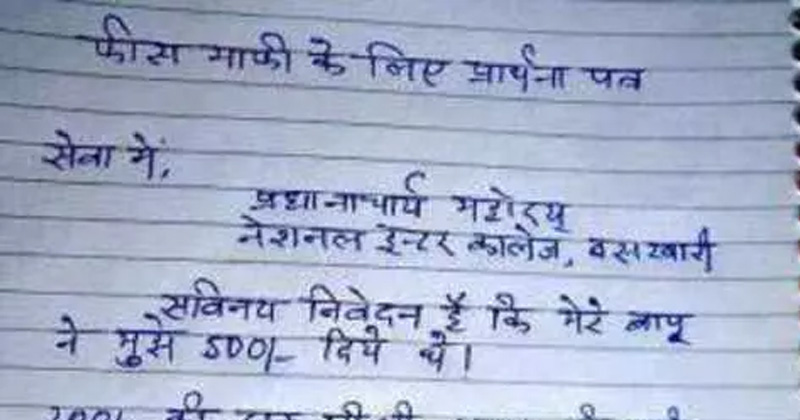 फीस माफी के लिए प्रार्थना पत्र
सेवा में,
प्रधानाचार्य महोदय
नेशनल इन्टर कालेज, बसखारी
सविनय निवेदन है कि मेरे बापू
ने मुझे 500/- दिये थे।
की